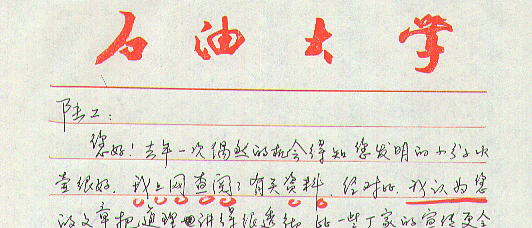 石油大学
陆工：
您好！去年一次偶然的机会得知您发明的小分水
壶很好. 我上网查阅了有关资料. 经对比, 我认为您
的文章把道理讲得很透彻 比一些厂家的宣传更全